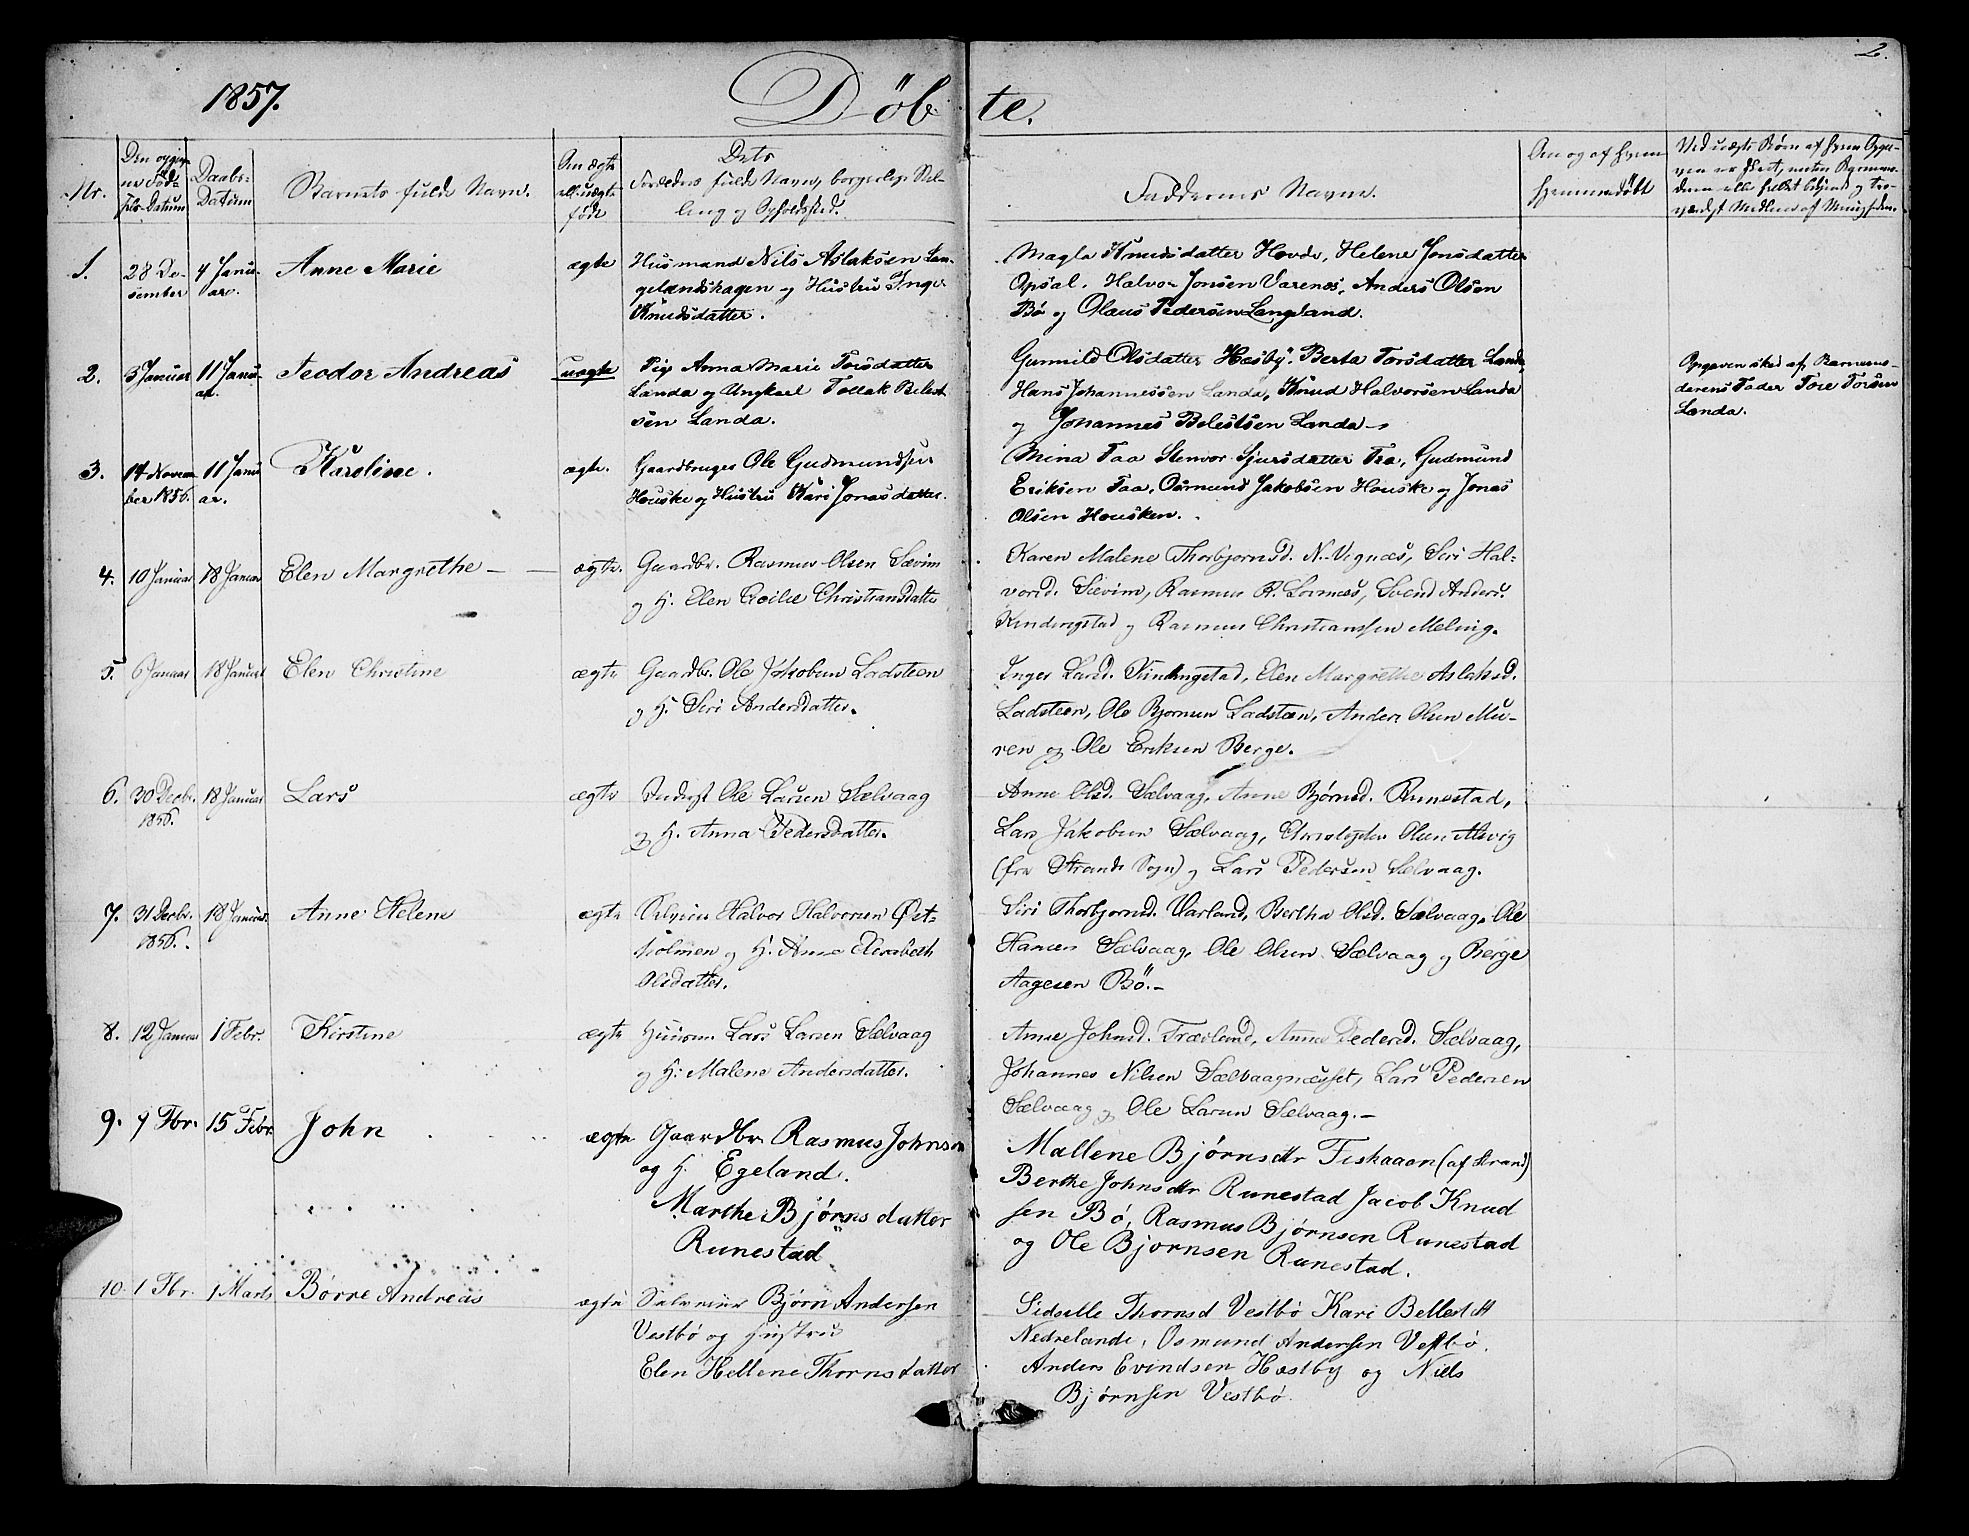 2.
1857.
Döbte.
Nr.
Den opgivne Fødsels-Datum
Daabs-Datum
Barnets fulde Navn.
Om ægte ell. uægte født
Dets Forældres fulde Navn, borgerlige Stilling og Opholdssted.
Faddernes Navne.
Om og af hvem hjemmedøbt
Ved uægte Børn af hvem Opgiven er skeet, enten Barnemoderen eller
1. 28 De- 4 Janu- Anne Marie ægte Husmand Nils Aslaksen Lan-
sember ar. gelandshagen og Hustru Inger
Knudsdatter.
Magla Knudsdatter Hovde, Helene Jonsdatter
Opsal. Halvor Jonsen Varenes, Anders Olsen
Bø og Olaus Pedersen Langeland.
2. 3 Januar 11 Janu- Teodor Andreas uægte Pige Anna Marie Torsdatter
ar. Landa og Ungkarl Tollak Belest
sen Landa.
Gunnild Olsdatter Hæsby. Berta Torsdatter Landa
Hans Johannessen Landa, Knud Halvorsen Landa
og Johannes Belestsen Landa
Opgaven sked af Barnemo-
derens Fader Tore Torsen
Landa.
3. 14 Novem 11 Janu Karoline. ægte. Gaardbruger Ole Gudmundsen
ber 1856. ar. Houske og Hustru Kari Jonasdatter.
Mina Taa Stenvor Sjursdatter Tra, Gudmund
Eriksen Taa, Osmund Jakobsen Houske og Jonas
Olsen Housken.
4. 10 Januar 18 Januar Elen Margrethe ægte. Gaardbr. Rasmus Olsen Sævim
og H. Elen Cecilie Christiansdatter
Karen Malene Thorbjørnsd. N. Vignæs, Siri Hal-
vorsd. Sævim, Rasmus R. , Svend Anders.
Kindingstad og Rasmus Christianssen Meling.
5. 6 Januar 18 Januar Elen Christine ægte Gaardbr. Ole Jakobsen Ladsteen
og H. Siri Andersdatter.
Inger Larsd. Kindingstad, Elen Margrethe Aslaksd.
Ladsteen, Ole Bjørnsen Ladsteen, Anders Olsen Mu-
ren og Ole Eriksen Berge.
6. 30 Decbr. 18 Januar Lars ægte Inderst Ole Larsen Sælvaag
1856. og H. Anna Pedersdatter.
Anne Olsd. Sælvaag, Anne Bjørnsd. Runestad,
Lars Jakobsen Sælvaag, Christopher Olsen Alsvig
(fra Strands Sogn) og Lars Pedersen Sælvaag.
7. 31 Decbr. 18 Januar Anne Helene ægte Selveier Halvor Halvorsen Øst-
1856. holmen og H. Anne Elisabeth
Olsdatter.
Siri Thorbjørnsd. Varland, Bertha Olsd. Sælvaag, Ole
Hansen Sælvaag, Ole Olsen Sælvaag og Berge
Aagesen Bö.-
8. 12 Januar 1 Febr. Kirstine ægte Huusm. Lars Larsen Sælvaag
og H. Malene Andersdatter.
Anne Johnsd. Trævland, Anne Pedersd. Sælvaag,
Johannes Nilsen Sælvaagnæsset, Lars Pedersen
Sælvaag og Ole Larsen Sælvaag.-
9. 7 Fbr. 15 Febr. John ægte Gaardbr. Rasmus Johnsen
og H. Egeland.
Marthe Bjørnsdatter
Runestad
Mallene Bjørnsdtr Fiskaaen (af Strand)
Berthe Johnsdtr Runestad Jacob Knud
sen Bø, Rasmus Bjørnsen Runestad
og Ole Bjornsen Runestad.
10. 1 Fbr. 1 Marts Børre Andreas ægte Selveier Bjørn Andersen
Vestbø og Hustru
Elen Hellene Thornsdatter
Sidselle Thornsd Vestbø Kari Bellestdtt
Nedrelande, Osmund Andersen Vestbø.
Anders Evindsen Hæstby og Niels
Bjørnsen Vestbø.